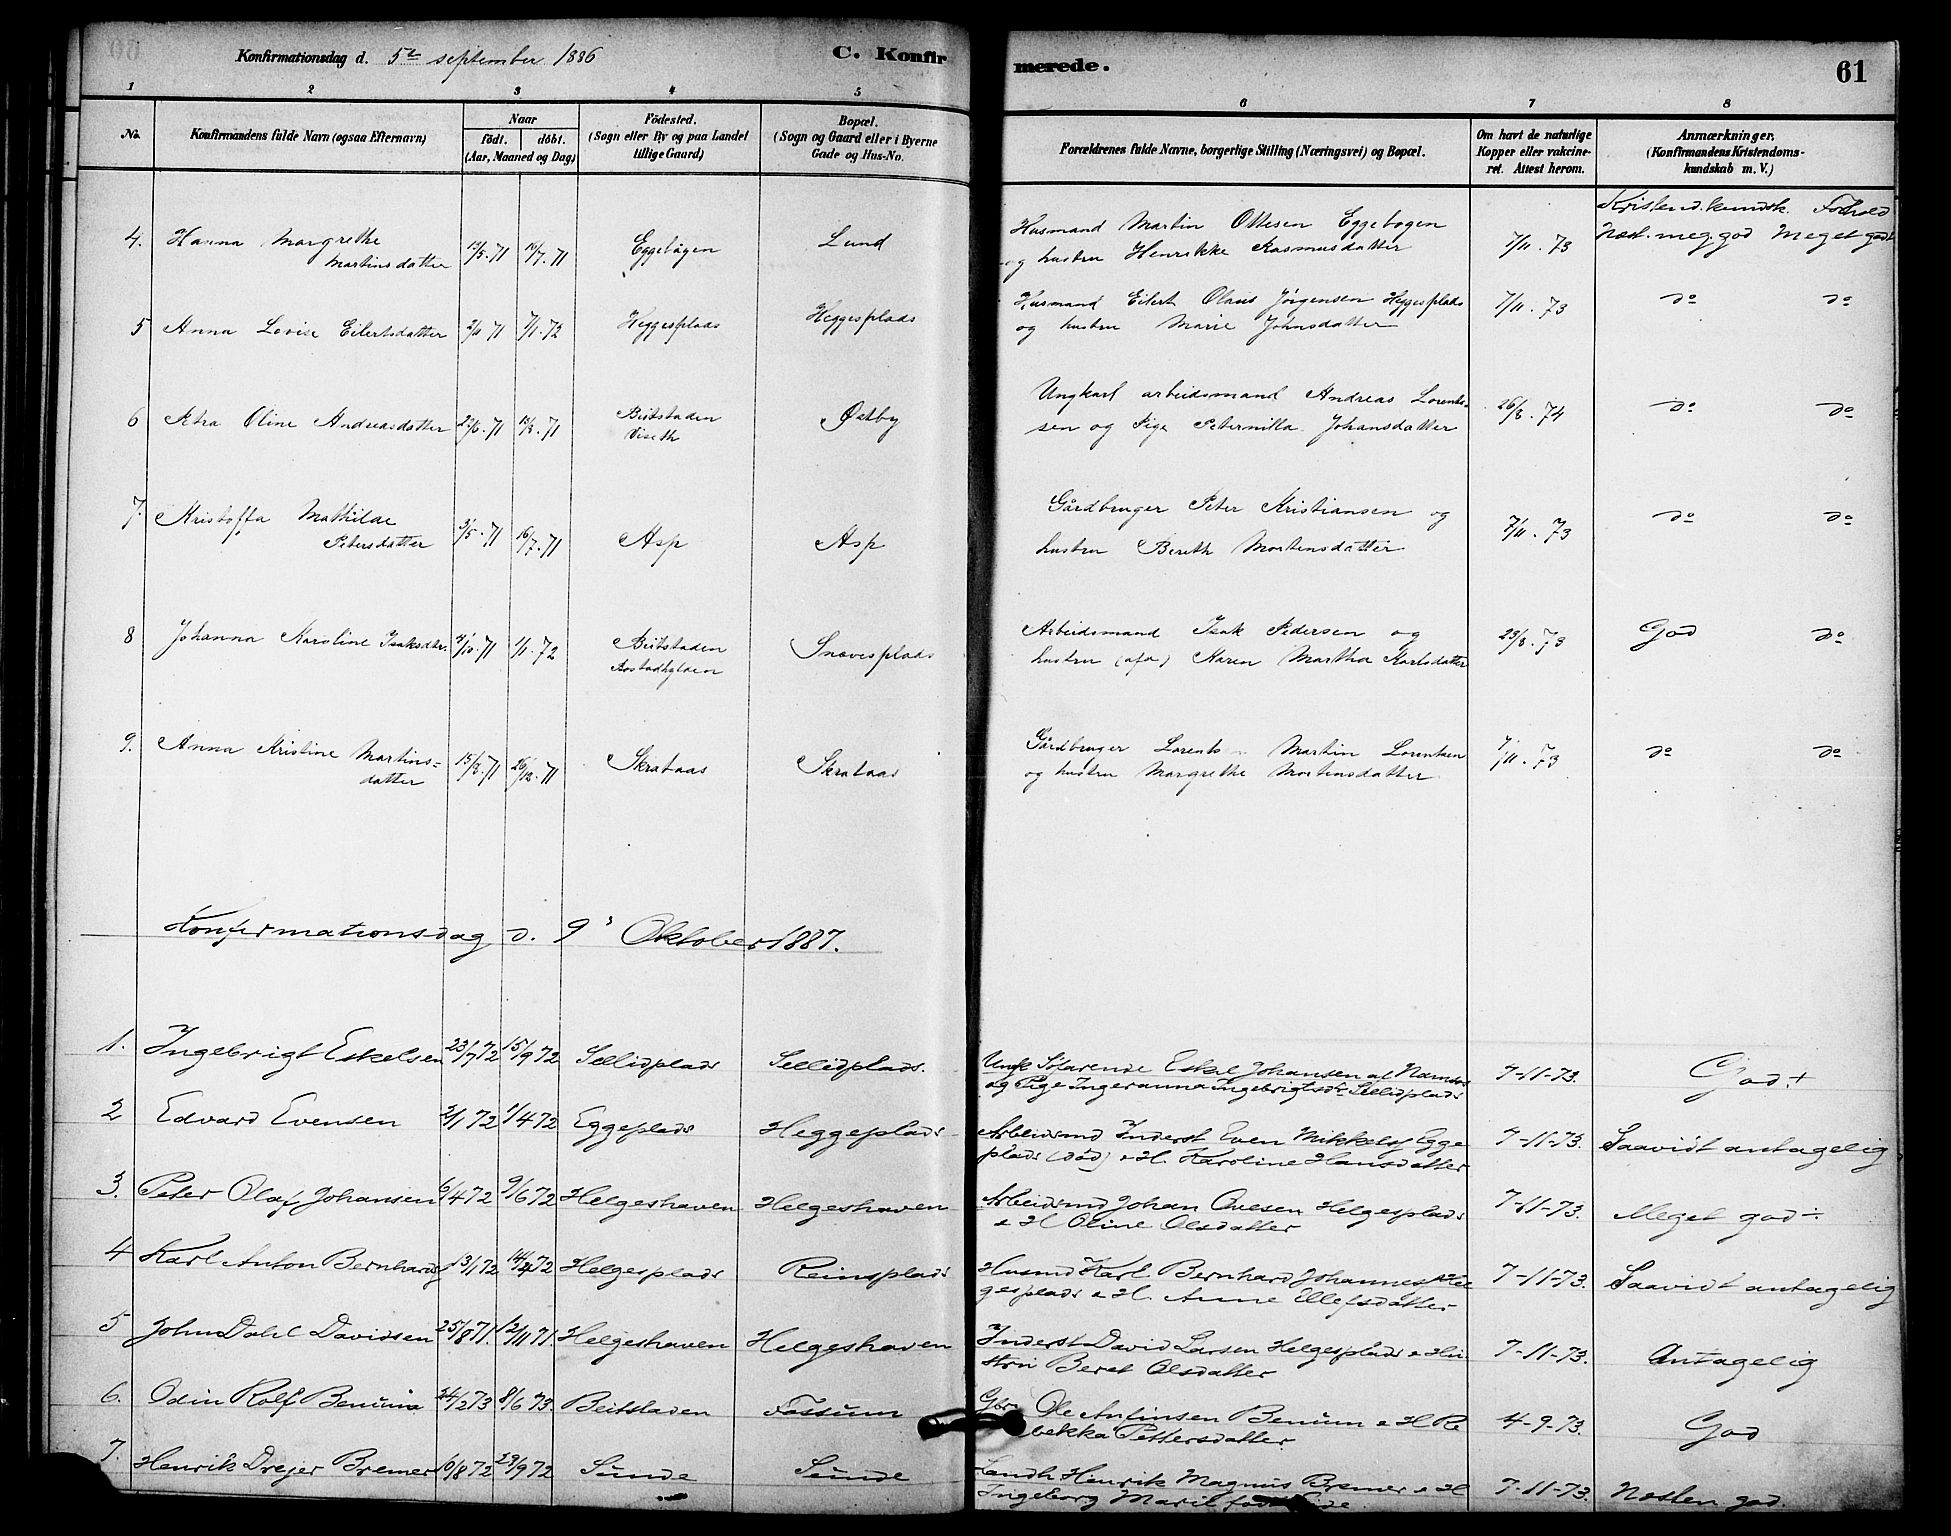 Konfirmationsdag d. 5te september 1886 C. Konfirmerede. 61
1 2 3 4 5 6 7 8
No. Konfirmandens fulde Navn (ogsaa Efternavn) Naar födt. döbt. (Aar, Maaned og Dag) Födested. (Sogn eller By og paa Landet tillige Gaard) Bopæl. (Sogn og Gaard eller i Byerne Gade og Hus-No. Forældrenes fulde Navne, borgerlige Stilling (Næringsvei) og Bopæl. Om havt de naturlige Kopper eller vakcineret. Attest herom. Anmærkninger. (Konfirmandens Kristendomskundskab m. V.)
Kristend.kundsk. Forhold
4. Hanna Margrethe Eggebogen Lund Husmand Martin Ottesen Eggebogen 7/11. 73 Næst. meg. god Meget godt
Martinsdatter 71 71 og hustru Henrikke Rasmusdatter
5 Anna Lovise Eilertsdatter 2/11 71 7/1. 72 Heggesplads Heggesplads Husmand Eilert Olaus Jörgensen Heggesplads 7/11. 73 do do
og hustru Marie Johnsdatter
6 Petra Oline Andreasdatter 71 71 Beitstaden Östby Ungkarl arbeidsmand Andreas Lorents- 26/8. 74 do do
sen og Pige Peternilla Johansdatter
7. Kristoffa Mathilde 3/5. 71 16/7. 71 Asp Asp Gårdbruger Peter Kristiansen og 7/11. 73 do do
Petersdatter hustru Bereth Mortensdatter
8 Johanna Karoline Isaksdtr. 71 1/1. 72 Beitstaden Snevesplads Arbeidsmand Isak Pedersen og 23/8. 73 God do
hustru Karen Martha Karlsdatter
9. Anna Kristine Martins= 15/8. 71 26/12. 71 Skrataas Skrataas Gårdbruger Lorents Martin Lorentsen 7/11. 73 do do
datter og hustru Margrethe Mortensdatter
Konfirmationsdag d. 9 Oktober 1887.
1. Ingebrigt Eskelsen 23/7 72 15/9 72 Sellidplads Sellidplads. Ungk Söfarende Eskel Johansen af Namsos 7-11-73. God +
og Pige Ingeranna Ingebrigtsdtr Sellidplads
2 Edvard Evensen 2/1 72 1/4 72 Eggeplads Heggeplads Arbeidsmd Inderst Even Mikkels Egge 7-11-73. Saavidt antagelig
plads (död) & H. Karoline Hansdatter
3. Peter Olaf Johansen 6/4 72 9/6 72 Helgeshaven Helgeshaven Arbeidsmd Johan Ovesen Helgesplads 7-11-73. Meget god ÷
& H Oline Olsdatter
4 Karl Anton Bernhards 13/1 72 14/4 72 Helgesplads Reinsplads Husmd Karl Bernhard Johannes Hel 7-11-73. Saavidt antagelig
gesplads & H. Anne Ellefsdatter
5 John Dahl Davidsen 25/8 71. 12/11 71. Helgeshaven Helgeshaven Inderst David Larsen Helgesplads & Hu 7-11-73. Antagelig
stru Beret Olsdatter
6. Odin Rolf Benum 24/2 73 8/6 73. Beitstaden Fossum Gbr Ole Antinsen Benum & H Re 4-9-73. God
bekka Pettersdatter
7. Henrik Drejer Bremer 10/8 72 29/9 72 Sunde Sunde Landh Henrik Magnus Bremer & H 7-11-73. Næsten god.
Ingeborg Marie